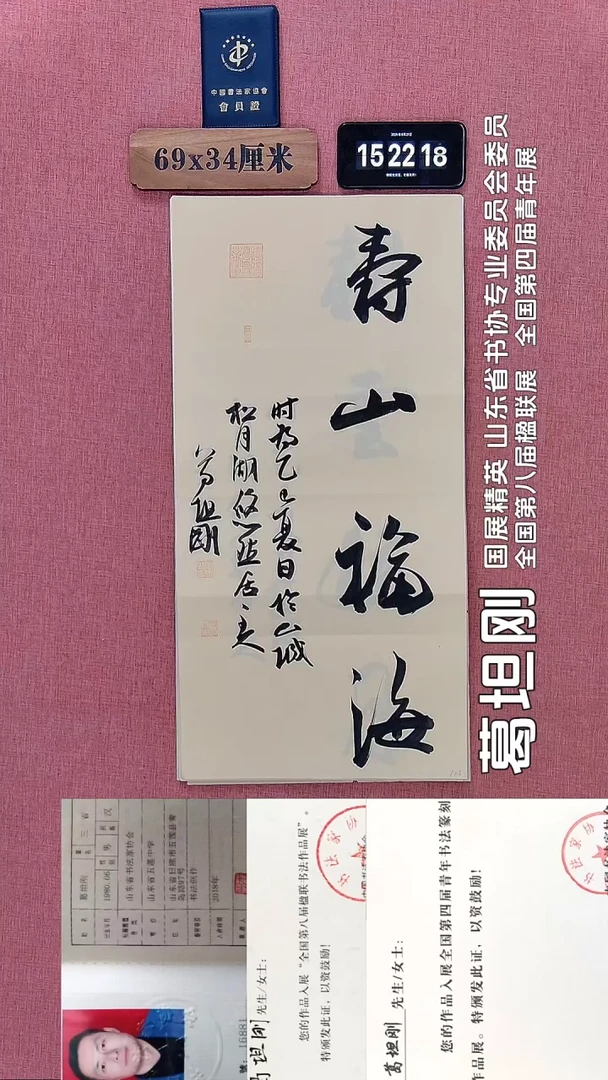 中國書法家協會
會員證
69x34厘米
15 22 18
寿山福海
时为乙巳夏日于山城
松月湖悠然居主
葛坦刚
国展精英 山东省书协专业委员会委员
全国第八届楹联展 全国第四届青年展
葛坦刚
葛坦刚
男
汉
1980.06
山东省书法家协会
山东省五莲中学
书法创作
2018年
葛坦刚 先生/女士:
您的作品入展“全国第八届楹联书法作品展”。
特颁发此证,以资鼓励!
葛坦刚 先生/女士:
您的作品入展全国第四届青年书法篆刻
作品展。特颁发此证,以资鼓励!